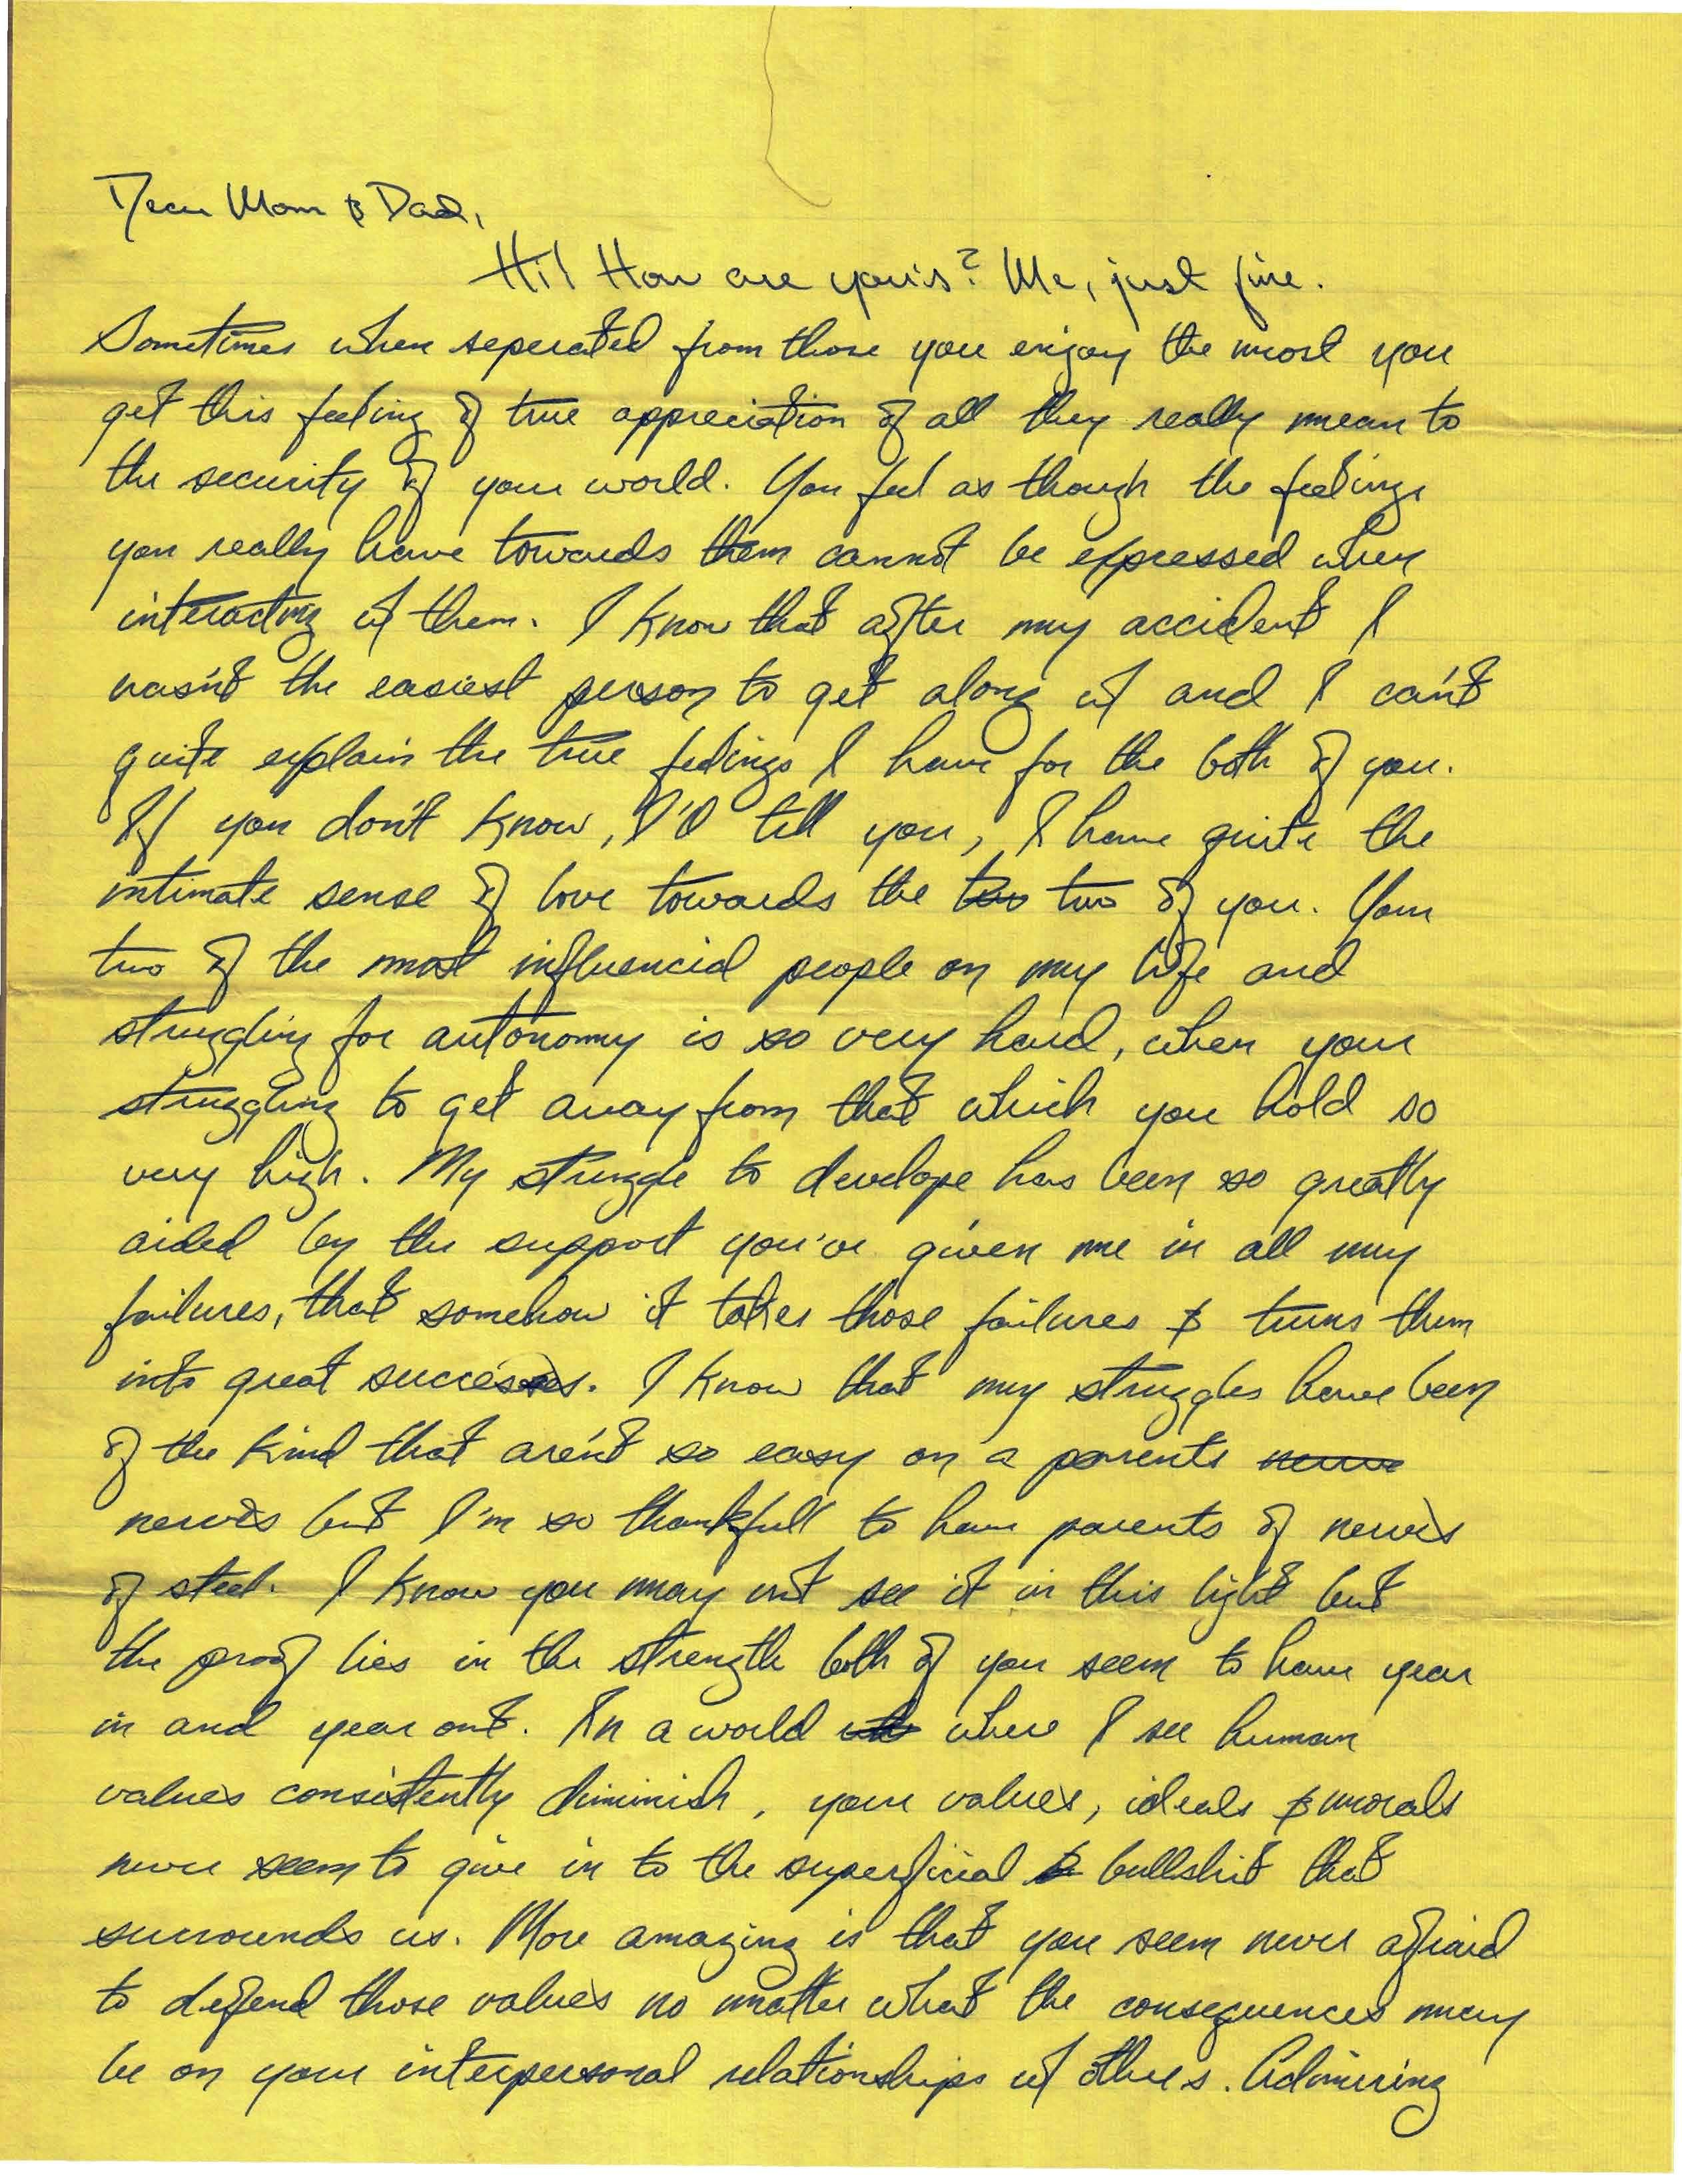 Dear Mom & Dad,
Hi! How are you's? Me, just fine.
Sometimes when seperated from those you enjoy the most you
get this feeling of true appreciation of all they really mean to
the security of your world. You feel as though the feelings
you really have towards them cannot be expressed when
interacting w/ them. I know that after my accident I
wasn't the easiest person to get along w/ and I can't
quite explain the true feelings I have for the both of you.
If you don't know, I'll tell you, I have quite the
intimate sense of love towards the two two of you. Your
two of the most influencial people on my life and
struggling for autonomy is so very hard, when your
struggling to get away from that which you hold so
very high. My struggle to develope has been so greatly
aided by the support you've given me in all my
failures, that somehow it takes those failures & turns them
into great successes. I know that my struggles have been
of the kind that aren't so easy on a parents nerve
nerves but I'm so thankfull to have parents of nerves
of steel. I know you may not see it in this light but
the proof lies in the strength both of you seem to have year
in and year out. In a world where I see human
values consistently diminish, your values, ideals & morals
never seem to give in to the superficial & bullshit that
surrounds us. More amazing is that you seem never afraid
to defend those values no matter what the consequences may
be on your interpersonal relationships w/ others. Admiring